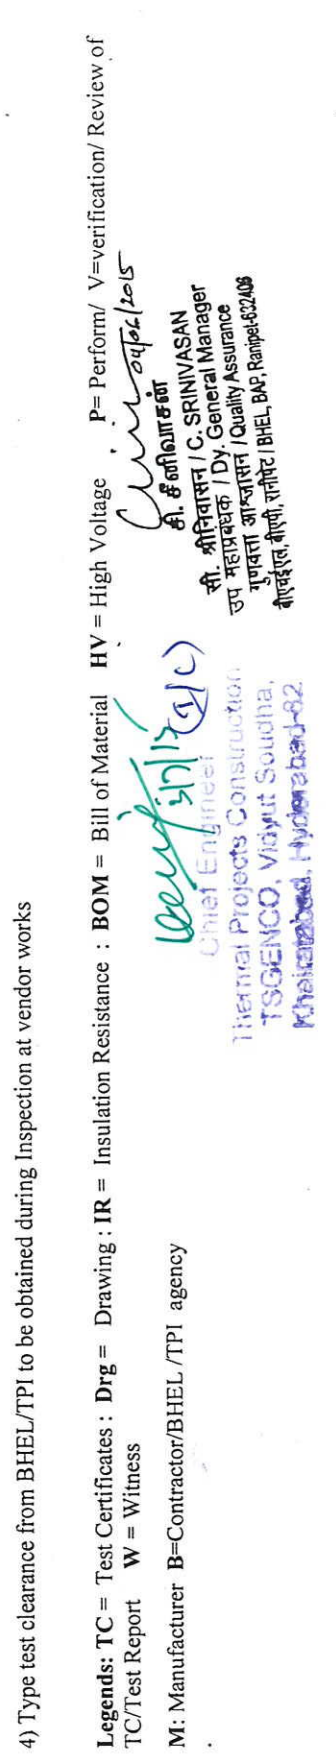 4) Type test clearance from BHEL/TPI to be obtained during Inspection at vendor works
Legends: TC = Test Certificates : Drg = Drawing : IR = Insulation Resistance : BOM = Bill of Material HV = High Voltage P= Perform/ V=verification/ Review of
TC/Test Report W = Witness
M: Manufacturer B=Contractor/BHEL /TPI agency
(I/C)
Chief Engineer
Thermal Projects Construction
TSGENCO, Vidyut Soudha,
Khairatabad, Hyderabad-82
04/06/2015
சி. சீனிவாசன்
सी. श्रीनिवासन / C. SRINIVASAN
उप महाप्रबंधक / Dy. General Manager
गुणवत्ता आश्वासन / Quality Assurance
बीएचईएल, बीएपी, रानीपेट / BHEL, BAP, Ranipet-632406